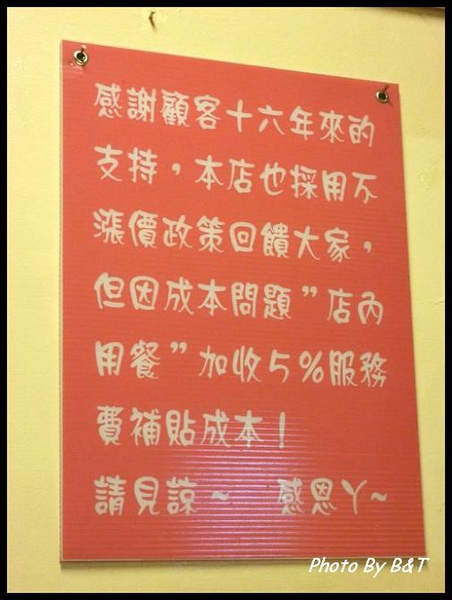 感謝顧客十六年來的
支持，本店也採用不
漲價政策回饋大家，
但因成本問題”店內
用餐”加收5%服務
費補貼成本！
請見諒～ 感恩丫~
Photo By B&T